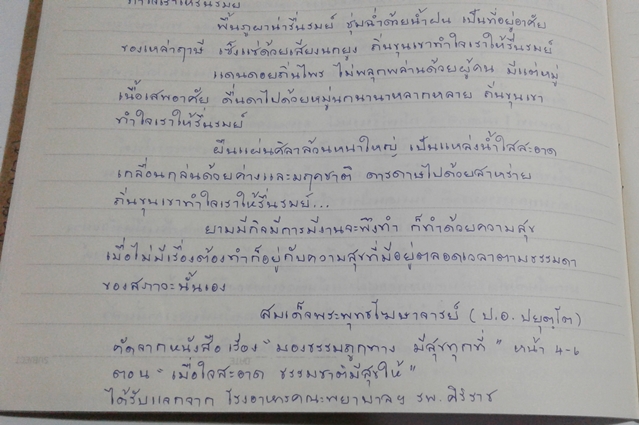 ทำใจเราให้รื่นรมย์
พื้นภูผาน่ารื่นรมย์ ชุ่มฉ่ำด้วยน้ำฝน เป็นที่อยู่อาศัย
ของเหล่าฤาษี เซ็งแซ่ด้วยเสียงนกยูง ถิ่นขุนเขาทำใจเราให้รื่นรมย์
แดนดอยถิ่นไพร ไม่พลุกพล่านด้วยผู้คน มีแต่หมู่
เนื้อเสพอาศัย ดื่นดาไปด้วยหมู่นกนานาหลากหลาย ถิ่นขุนเขา
ทำใจเราให้รื่นรมย์
ผืนแผ่นศิลาล้วนหนาใหญ่ เป็นแหล่งน้ำใสสะอาด
เกลื่อนกล่นด้วยค่างและมฤคชาติ ดารดาษไปด้วยสาหร่าย
ถิ่นขุนเขาทำใจเราให้รื่นรมย์...
ยามมีกิจมีการมีงานจะพึงทำ ก็ทำด้วยความสุข
เมื่อไม่มีเรื่องต้องทำก็อยู่กับความสุขที่มีอยู่ตลอดเวลาตามธรรมดา
ของสภาวะนั้นเอง
สมเด็จพระพุทธโฆษาจารย์ (ป.อ. ปยุตฺโต)
คัดจากหนังสือ เรื่อง " มองธรรมถูกทาง มีสุขทุกที่ " หน้า 4-6
ตอน " เมื่อใจสะอาด ธรรมชาติมีสุขให้ "
ได้รับแจกจาก โรงอาหารคณะพยาบาลฯ รพ. ศิริราช